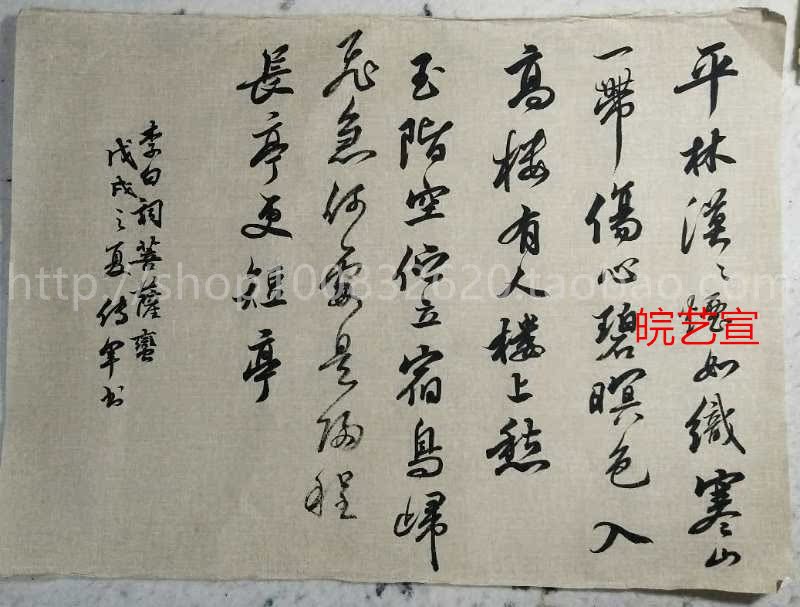 平林漠〻煙如織寒山
一帶傷心碧暝色入
高楼有人楼上愁
玉階空佇立宿鳥歸
飛急何處是歸程
長亭更短亭
李白詞菩薩蠻
戊戌之夏传军书
皖艺宣